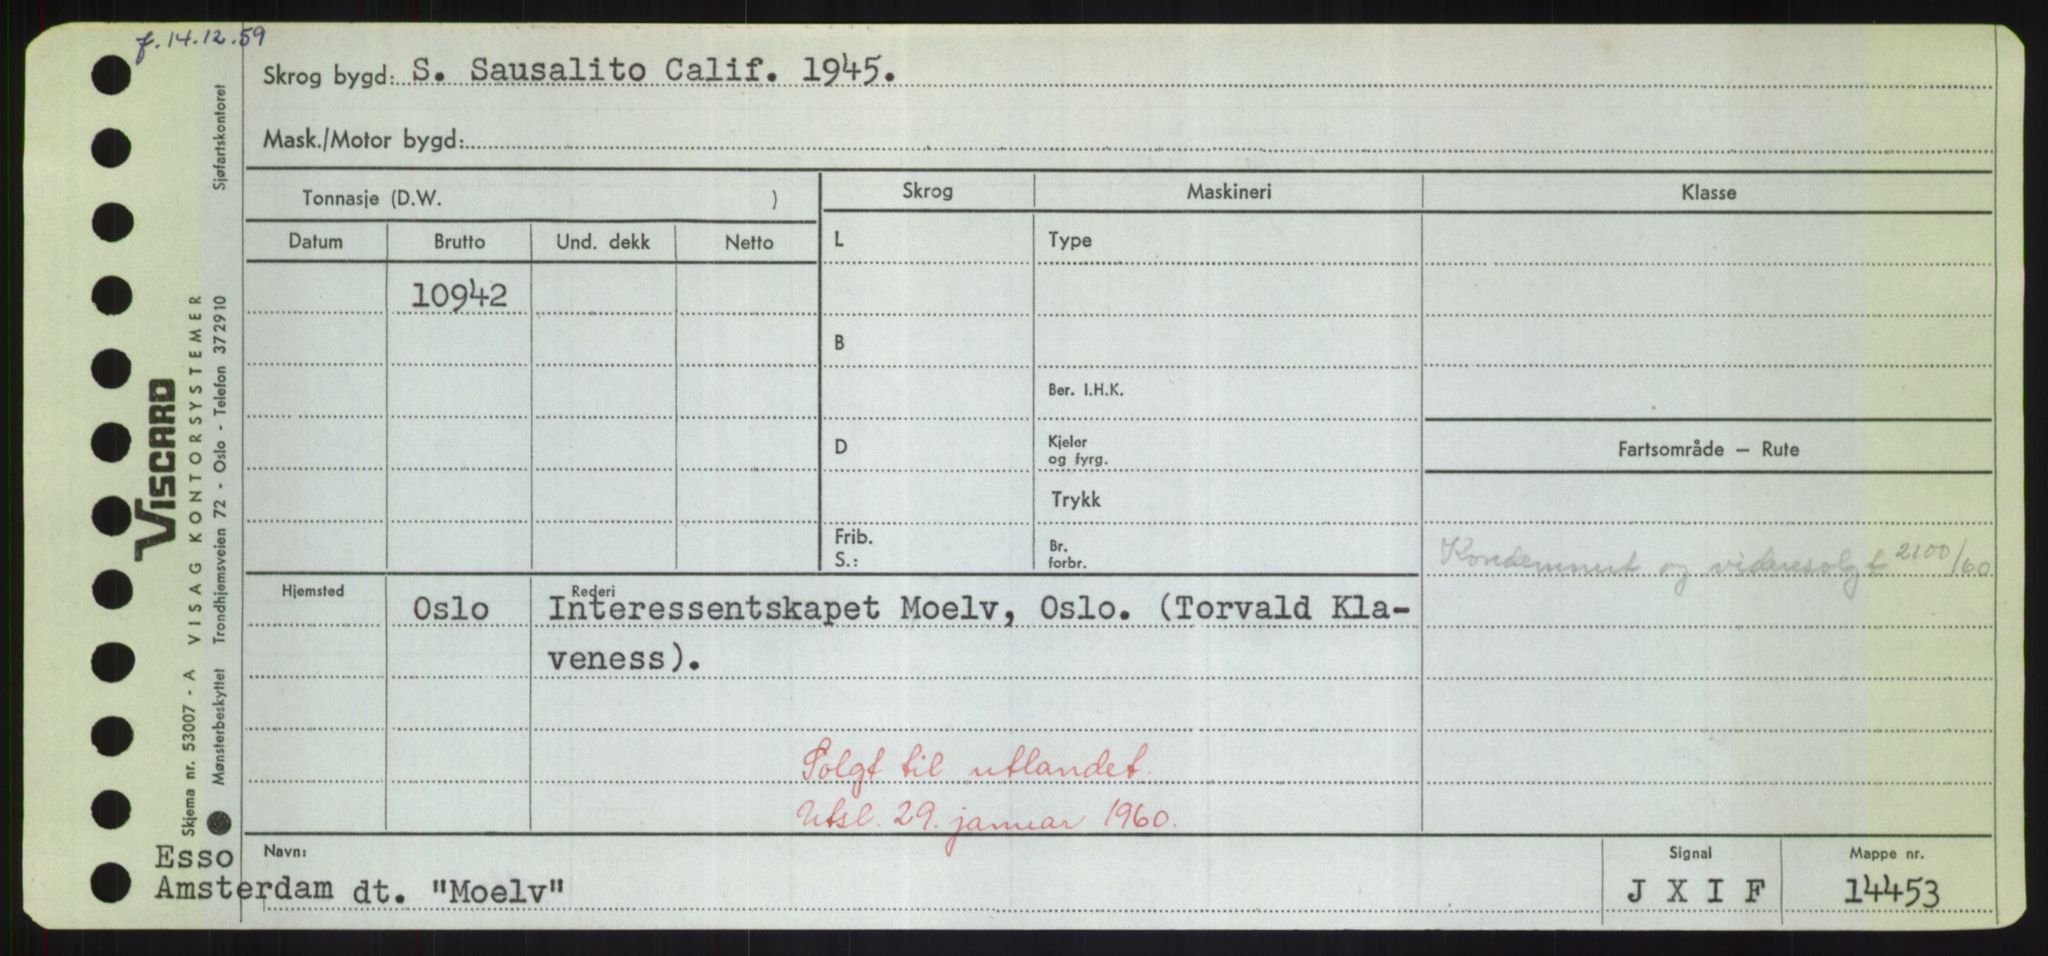 f. 14.12.59
Skrog bygd: S. Sausalito Calif. 1945.
Mask./Motor bygd:
Tonnasje (D.W. )
Skrog Maskineri Klasse
Datum Brutto Und. dekk Netto
L Type
10942
B
Ber. I.H.K.
D Kjeler og fyrg.
Fartsområde — Rute
Trykk
Frib.
S.:
Br. forbr.
Kondemnert og videresolgt 2100/60
Hjemsted Rederi
Oslo Interessentskapet Moelv, Oslo. (Torvald Kla-
veness).
Solgt til utlandet.
Utsl. 29. januar 1960.
Navn: Signal Mappe nr.
Esso
Amsterdam dt. "Moelv" J X I F 14453
VISCARD
Skjema nr. 53007 - A VISAG KONTORSYSTEMER
Mønsterbeskyttet Trondhjemsveien 72 - Oslo - Telefon 372910 Sjøfartskontoret